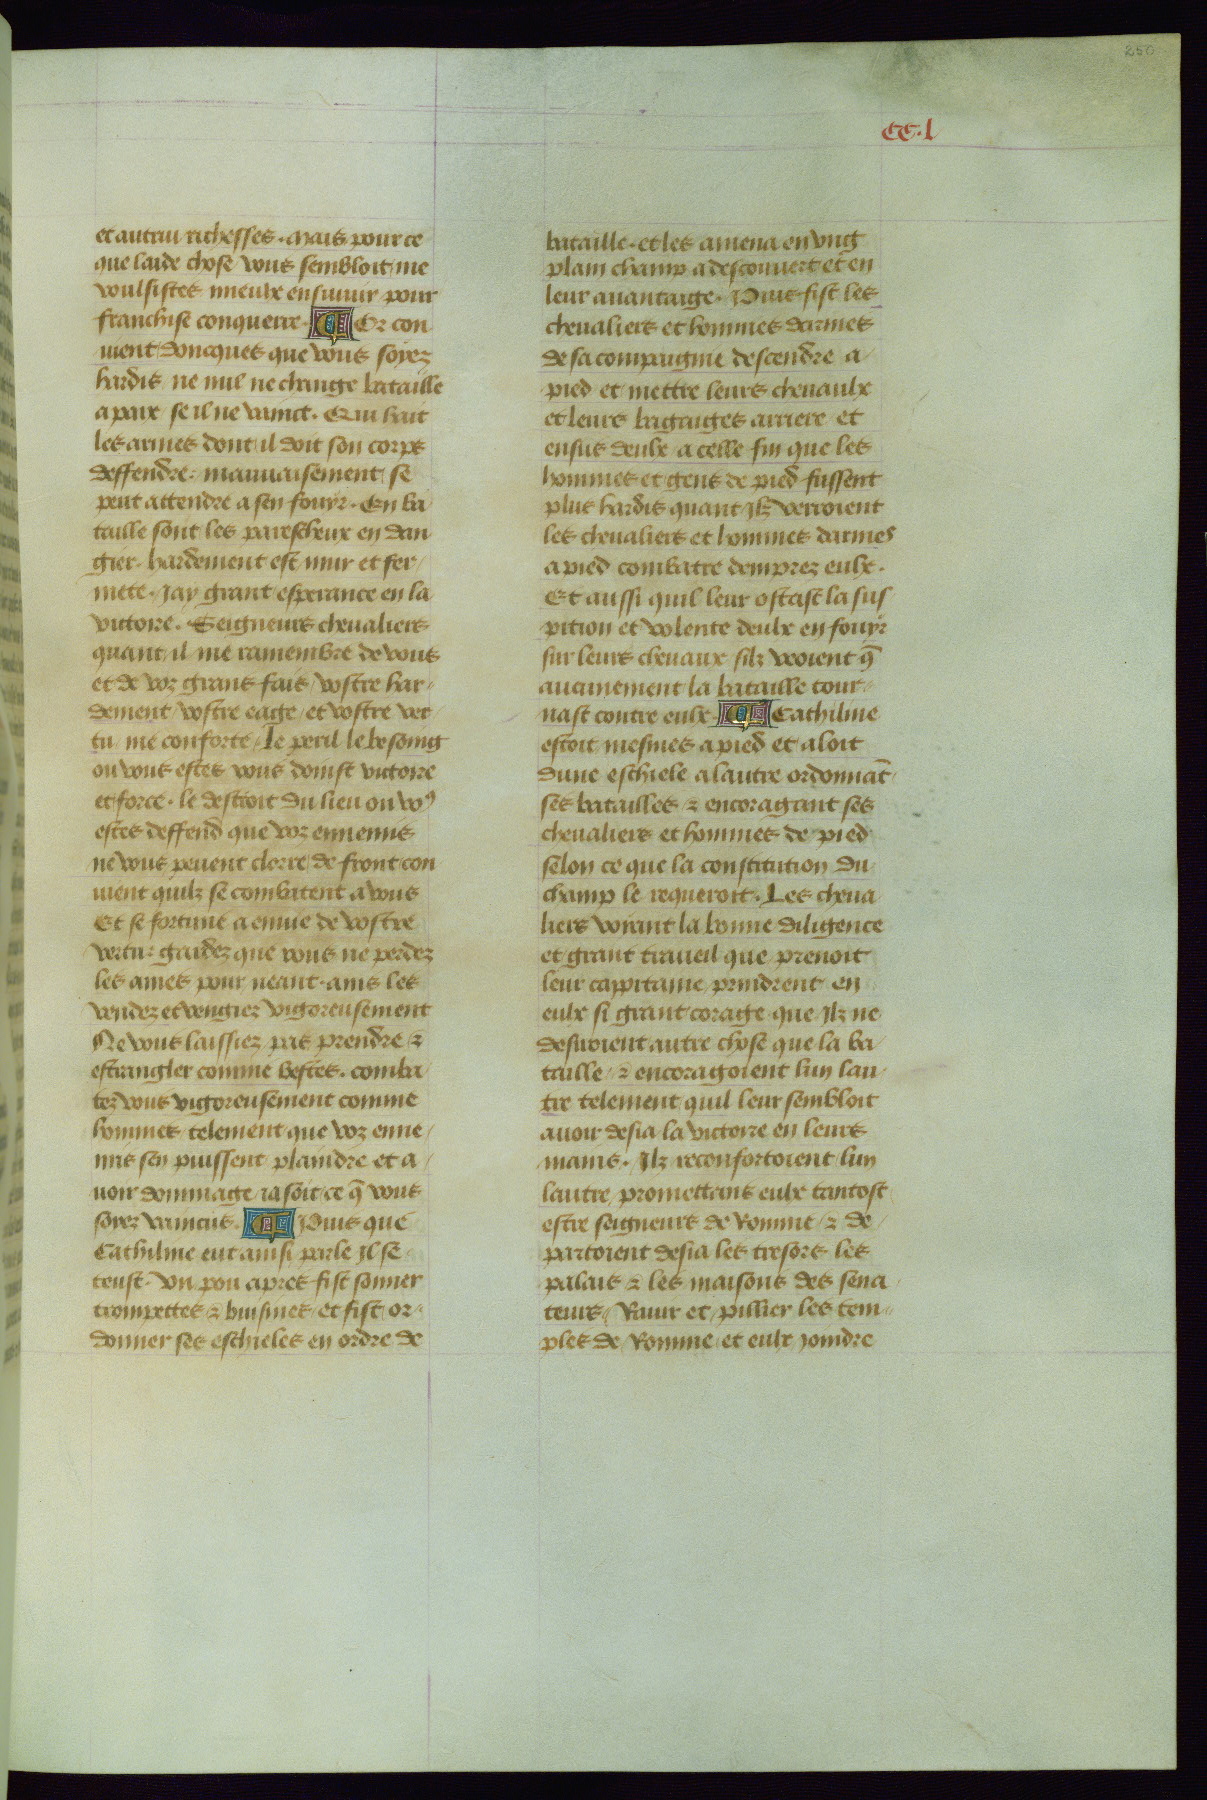 250
CC.l
et autrui richesses. Mais pour ce
que laide chose vous sembloit me
voulsistes mieulx ensuiuir pour
franchise conquerre. Or con
uient doncques que vous soyez
hardis ne nul ne change bataille
a paix se il ne vainct. Qui hait
les armes dont il doit son corps
deffendre. mauuaisement se
peut attendre a sen fouyr. En ba
taille sont les parescheux en dan
gier. hardement est mur et fer
mete. Jay grant esperance en la
victoire. Seigneurs cheualiers
quant il me ramembre de vous
et de voz grans fais vostre har
dement vostre eage et vostre ver
tu me conforte Le peril le besoing
ou vous estes vous doinst victoire
et force. le destroit du lieu ou voꝰ
estes deffend que voz ennemis
ne vous peuent clorre de front con
uient quilz se combatent a vous
Et se fortune a enuie de vostre
vertu gardez que vous ne perdez
les ames pour neant. ains les
vendez et vengiez vigoreusement
Ne vous laissiez pas prendre ⁊
estrangler comme bestes. comba
tez vous vigoreusement comme
hommes telement que voz enne
mis sen puissent plaindre et a
uoir dommage ia soit ce q̄ vous
soyez vaincus. Puis que
Cathiline eut ainsi parle Jl se
teust. Vn pou apres fist sonner
trompettes ⁊ buisines et fist or
donner ses eschieles en ordre de
bataille. et les amena en vng
plain champ a descouuert et en
leur auantaige. Puis fist les
cheualiers et hommes darmes
de sa compaignie descendre a
pied et mettre leurs cheuaulx
et leurs bagaiges arriere et
ensus deulx a celle fin que les
hommes et gens de pied fussent
plus hardis quant Jlz verroient
les cheualiers et hommes darmes
a pied combatre demprez eulx.
Et aussi quil leur ostast la sus
pition et volente deulx en fouyr
sur leurs cheuaux silz veoient q̄
aucunement la bataille tour
nast contre eulx. Cathiline
estoit mesmes a pied et aloit
dune eschiele a lautre ordonnāt
ses batailles ⁊ encoragant ses
cheualiers et hommes de pied
selon ce que la constitution du
champ le requeroit. Les cheua
liers voiant la bonne diligence
et grant traueil que prenoit
leur capitaine prindrent en
eulx si grant corage que Jlz ne
desiroient autre chose que la ba
taille. ⁊ encoragoient lun lau
tre telement quil leur sembloit
auoir desia la victoire en leurs
mains. Jlz reconfortoient lun
lautre promettans eulx tantost
estre seigneurs de Romme ⁊ de
partoient desia les tresors les
palais ⁊ les maisons des sena
teurs Rauir et pillier les tem
ples de Romme et eulx joindre